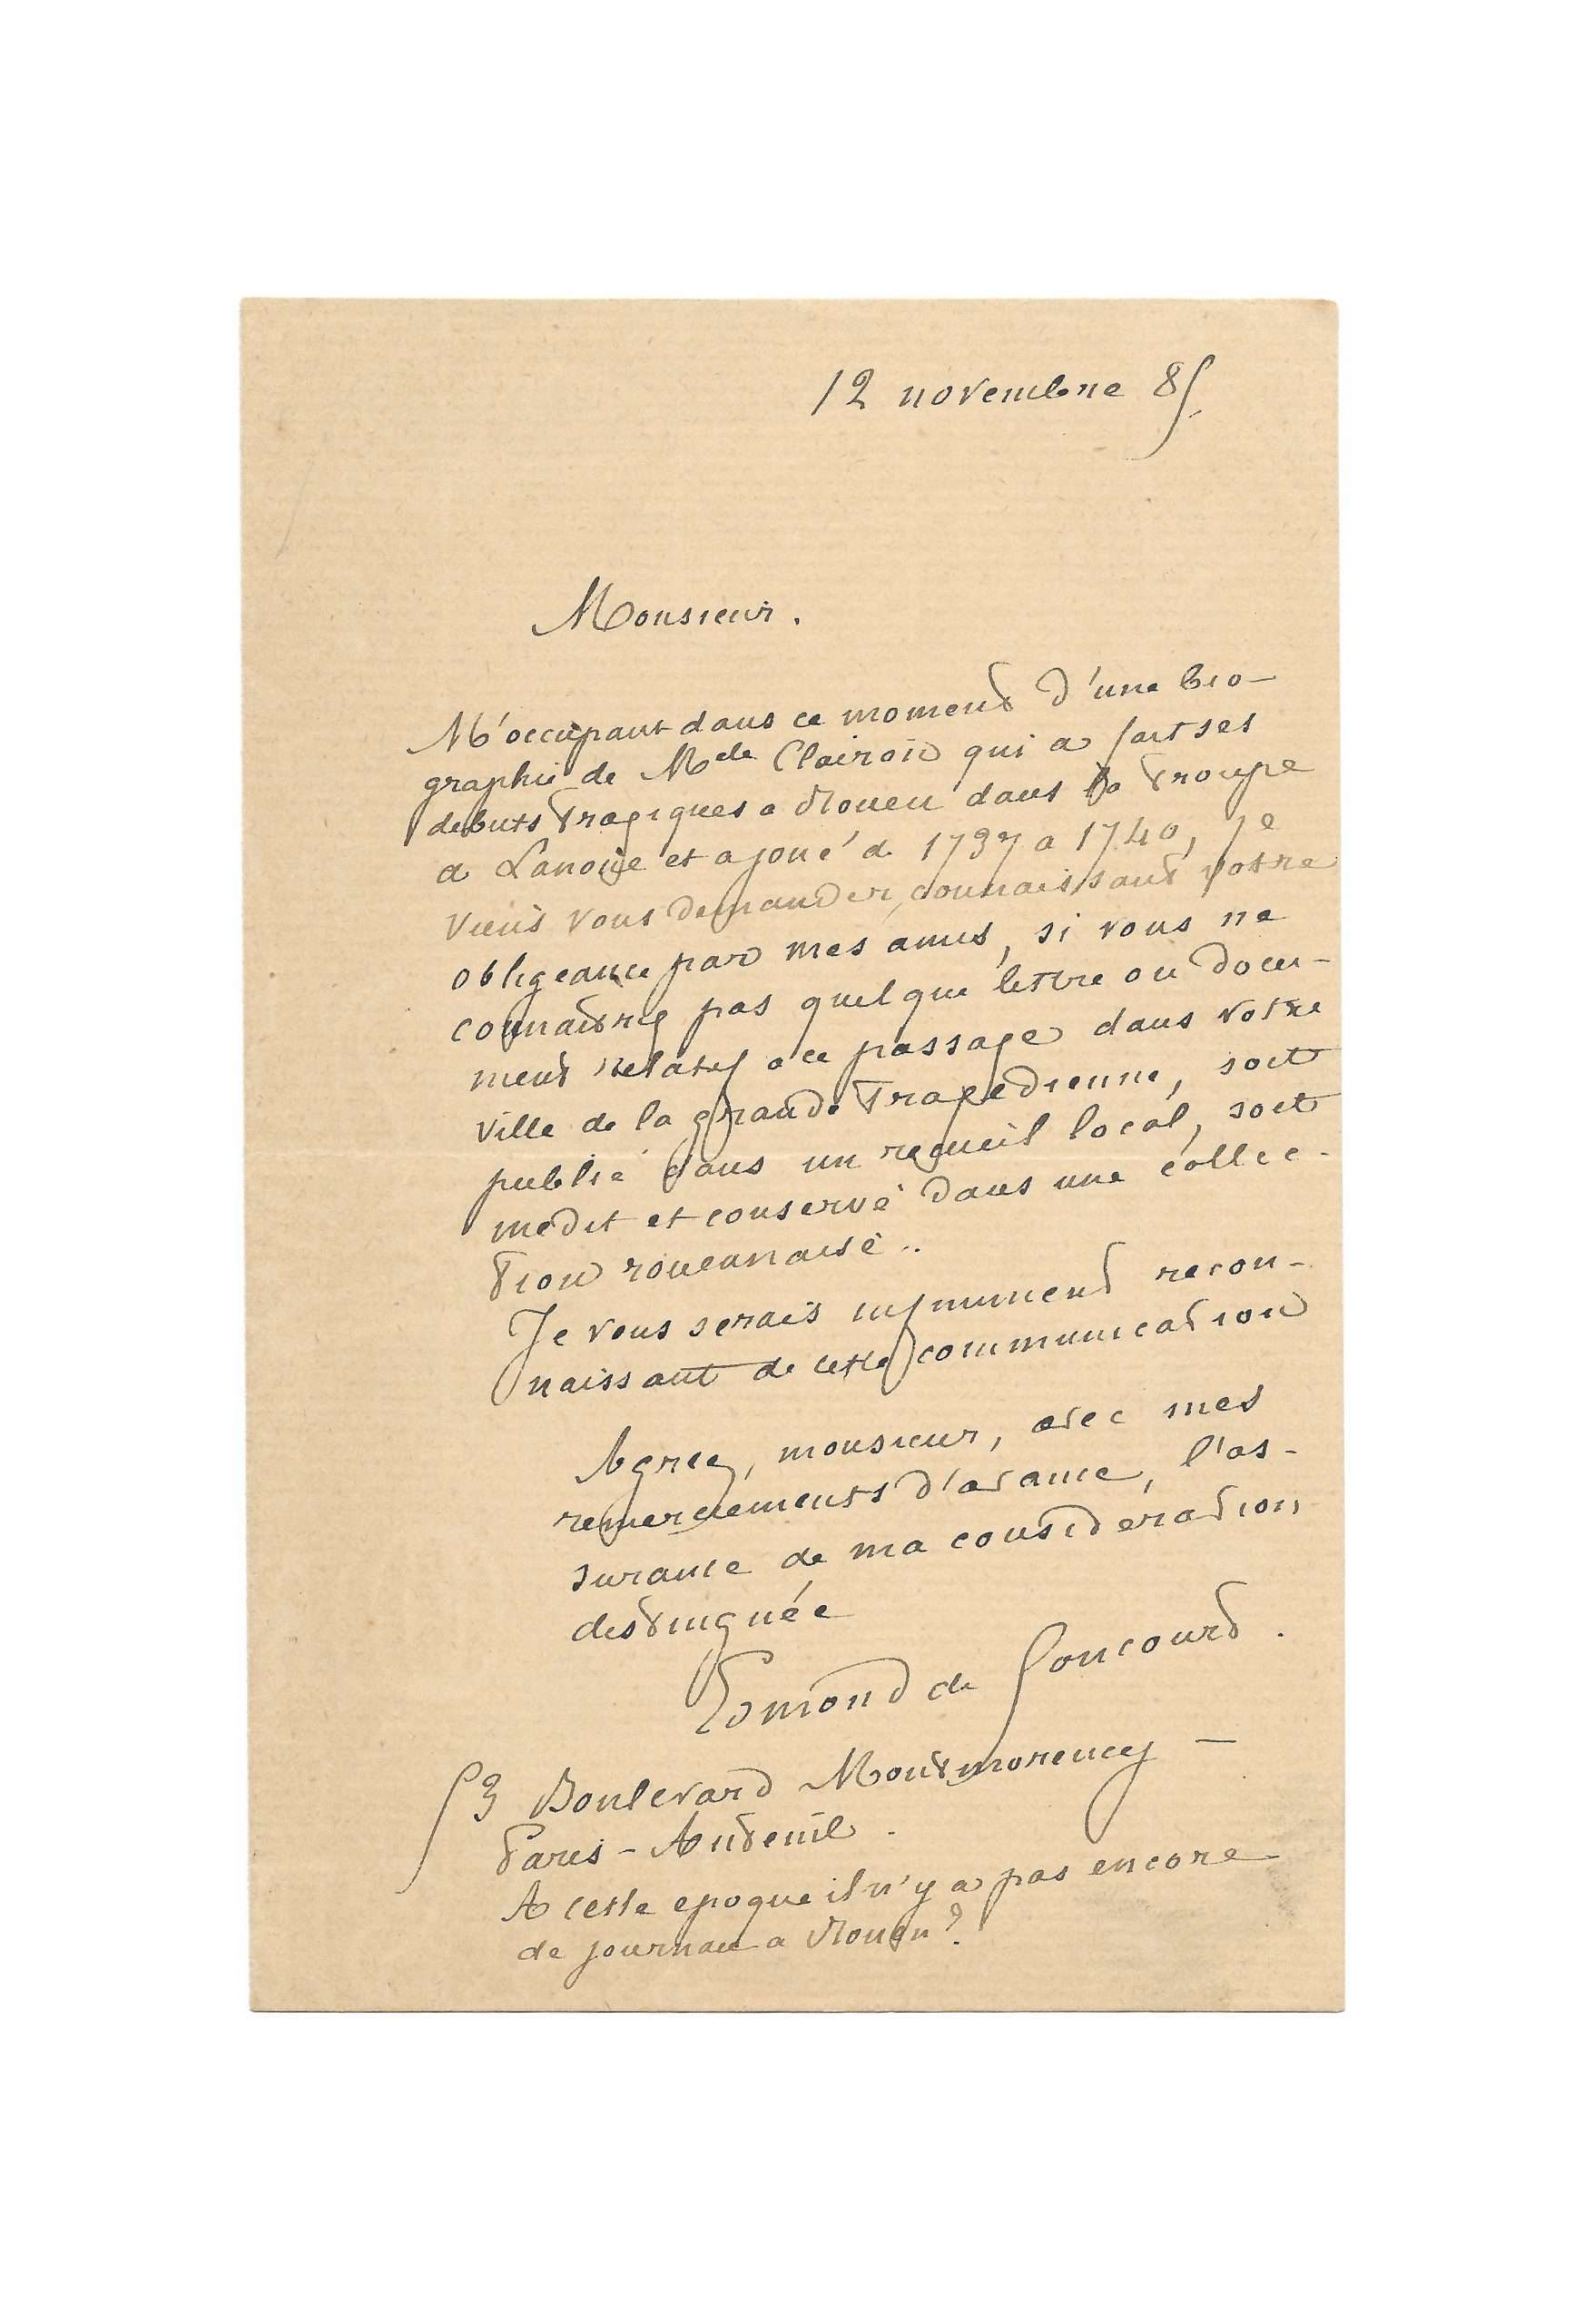 12 novembre 85
Monsieur.
M'occupant dans ce moment d'une bio-
graphie de Mdelle Clairon qui a fait ses
debuts tragiques a Rouen dans la troupe
a Lanoue et a joué de 1737 a 1740, je
viens vous demander, connaissant votre
obligeance par mes amis, si vous ne
connaitriez pas quelque lettre ou docu-
ment relatif a ce passage dans votre
ville de la grande tragedienne, soit
publié dans un recueil local, soit
inedit et conservé dans une collec-
tion rouennaise..
Je vous serais infiniment recon-
naissant de cette communication
Agreez, monsieur, avec mes
remerciements d'avance, l'as-
surance de ma consideration
distinguée
Edmond de Goncourt.
53 Boulevard Montmorency -
Paris - Auteuil.
A cette epoque il n'y a pas encore
de journau a Rouen?